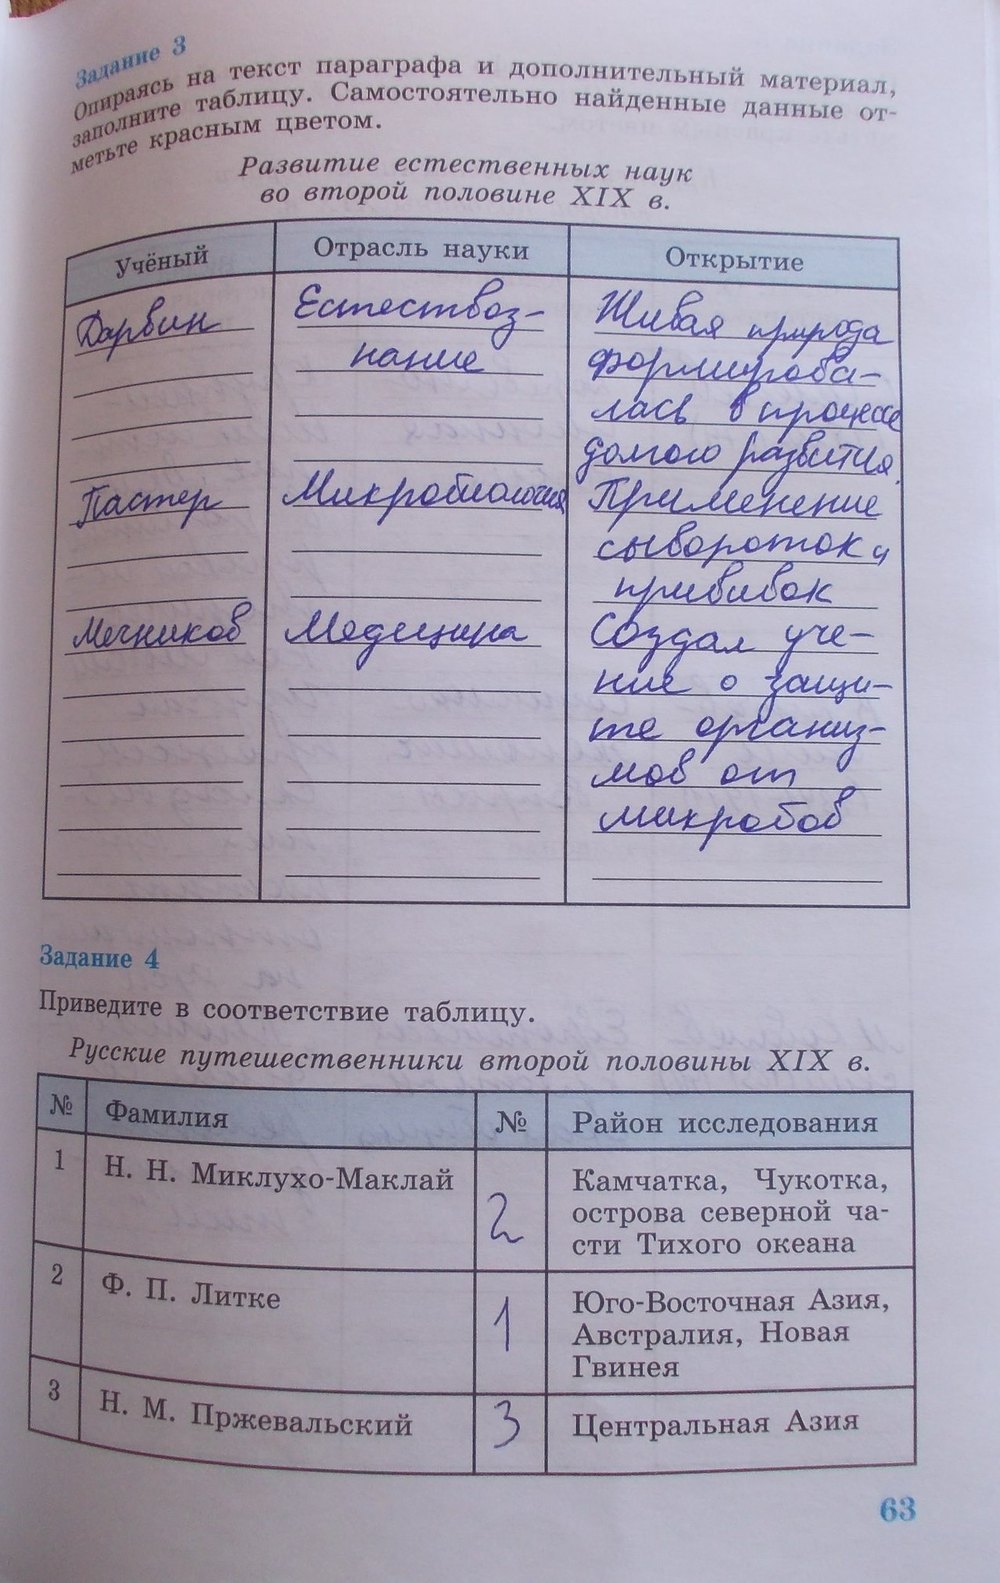 Задание 3
Опираясь на текст параграфа и дополнительный материал,
заполните таблицу. Самостоятельно найденные данные от-
метьте красным цветом.
Развитие естественных наук
во второй половине XIX в.
Учёный Отрасль науки Открытие
Дарвин Естествоз- Живая природа
нание формирова-
лась в процессе
долгого развития.
Пастер Микробиология Применение
сывороток и
прививок
Мечников Медицина Создал уче-
ние о защи-
те организ-
мов от
микробов
Задание 4
Приведите в соответствие таблицу.
Русские путешественники второй половины XIX в.
№ Фамилия № Район исследования
1 Н. Н. Миклухо-Маклай 2 Камчатка, Чукотка,
острова северной ча-
сти Тихого океана
2 Ф. П. Литке 1 Юго-Восточная Азия,
Австралия, Новая
Гвинея
3 Н. М. Пржевальский 3 Центральная Азия
63